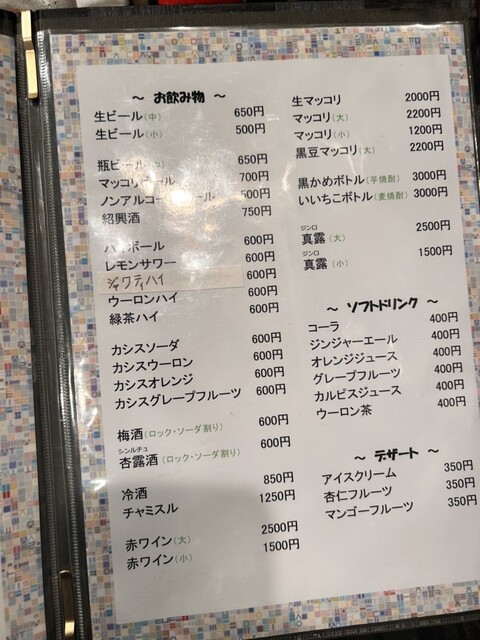 ～ お飲み物 ～
生ビール(中) 650円
生ビール(小) 500円
瓶ビール 650円
マッコリ 700円
ノンアルコール ール 500円
紹興酒 750円
ハ ボール 600円
レモンサワー 600円
シャワティハイ 600円
ウーロンハイ 600円
緑茶ハイ 600円
カシスソーダ 600円
カシスウーロン 600円
カシスオレンジ 600円
カシスグレープフルーツ 600円
梅酒(ロック・ソーダ割り) 600円
シンルチュ
杏露酒(ロック・ソーダ割り) 600円
冷酒 850円
チャミスル 1250円
赤ワイン(大) 2500円
赤ワイン(小) 1500円
生マッコリ 2000円
マッコリ(大) 2200円
マッコリ(小) 1200円
黒豆マッコリ(大) 2200円
黒かめボトル(芋焼酎) 3000円
いいちこボトル(麦焼酎) 3000円
ジンロ
真露(大) 2500円
ジンロ
真露(小) 1500円
～ ソフトドリンク ～
コーラ 400円
ジンジャーエール 400円
オレンジジュース 400円
グレープフルーツ 400円
カルピスジュース 400円
ウーロン茶 400円
～ デザート ～
アイスクリーム 350円
杏仁フルーツ 350円
マンゴーフルーツ 350円